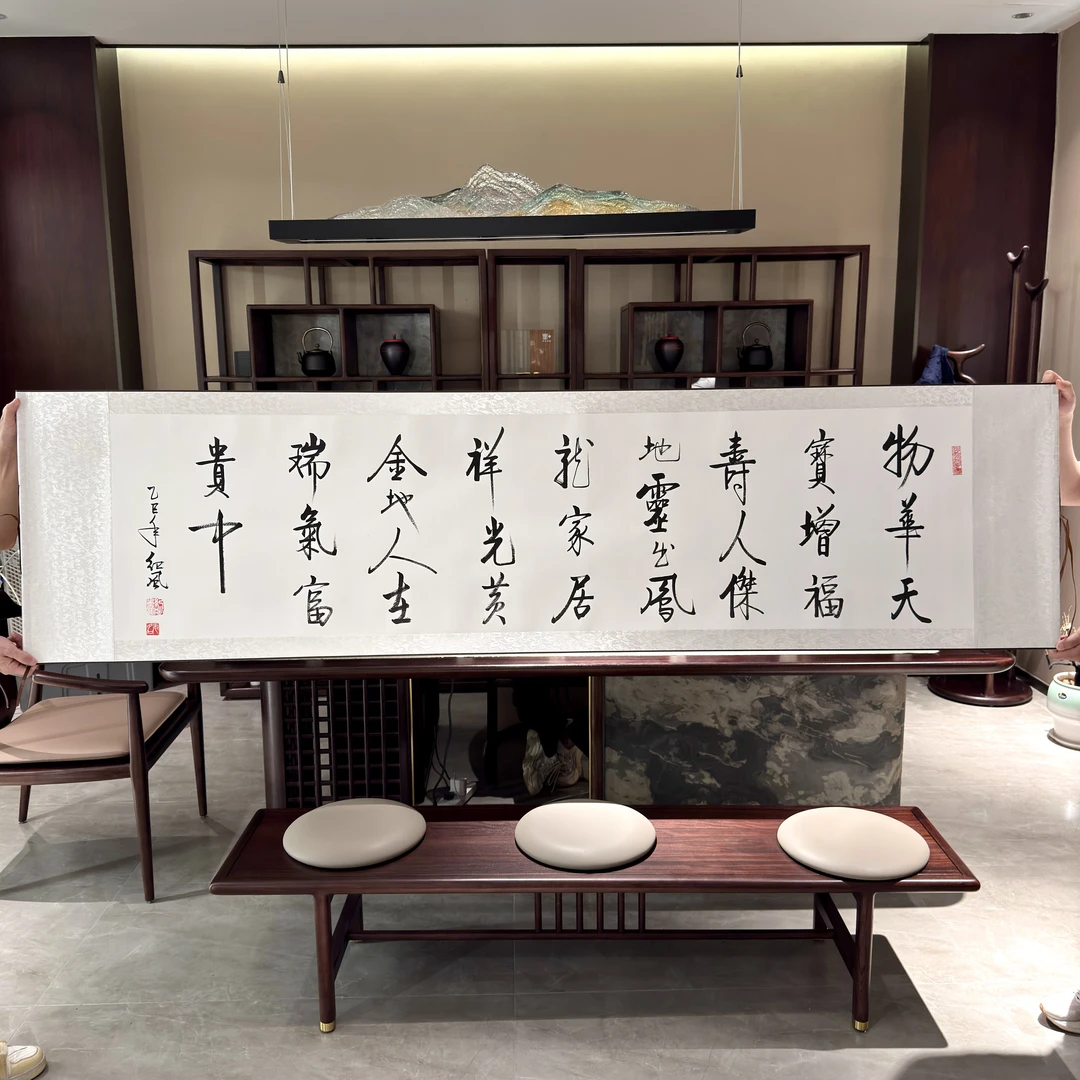 物華天
寶增福
壽人傑
地靈出鳳
龍家居
祥光黃
金地人在
瑞氣富
貴中
乙巳年 和風